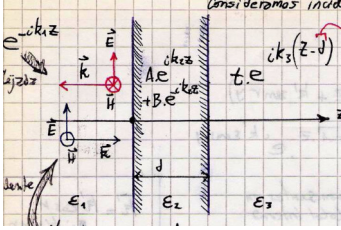 Consideramos incid
e^{-ik₁z}
E⃗
k⃗
H⃗
A.e^{ik₂z}
+B.e^{-ik₂z}
t.e^{ik₃(z-d)}
E⃗
H⃗
k⃗
z
d
ε₁
ε₂
ε₃